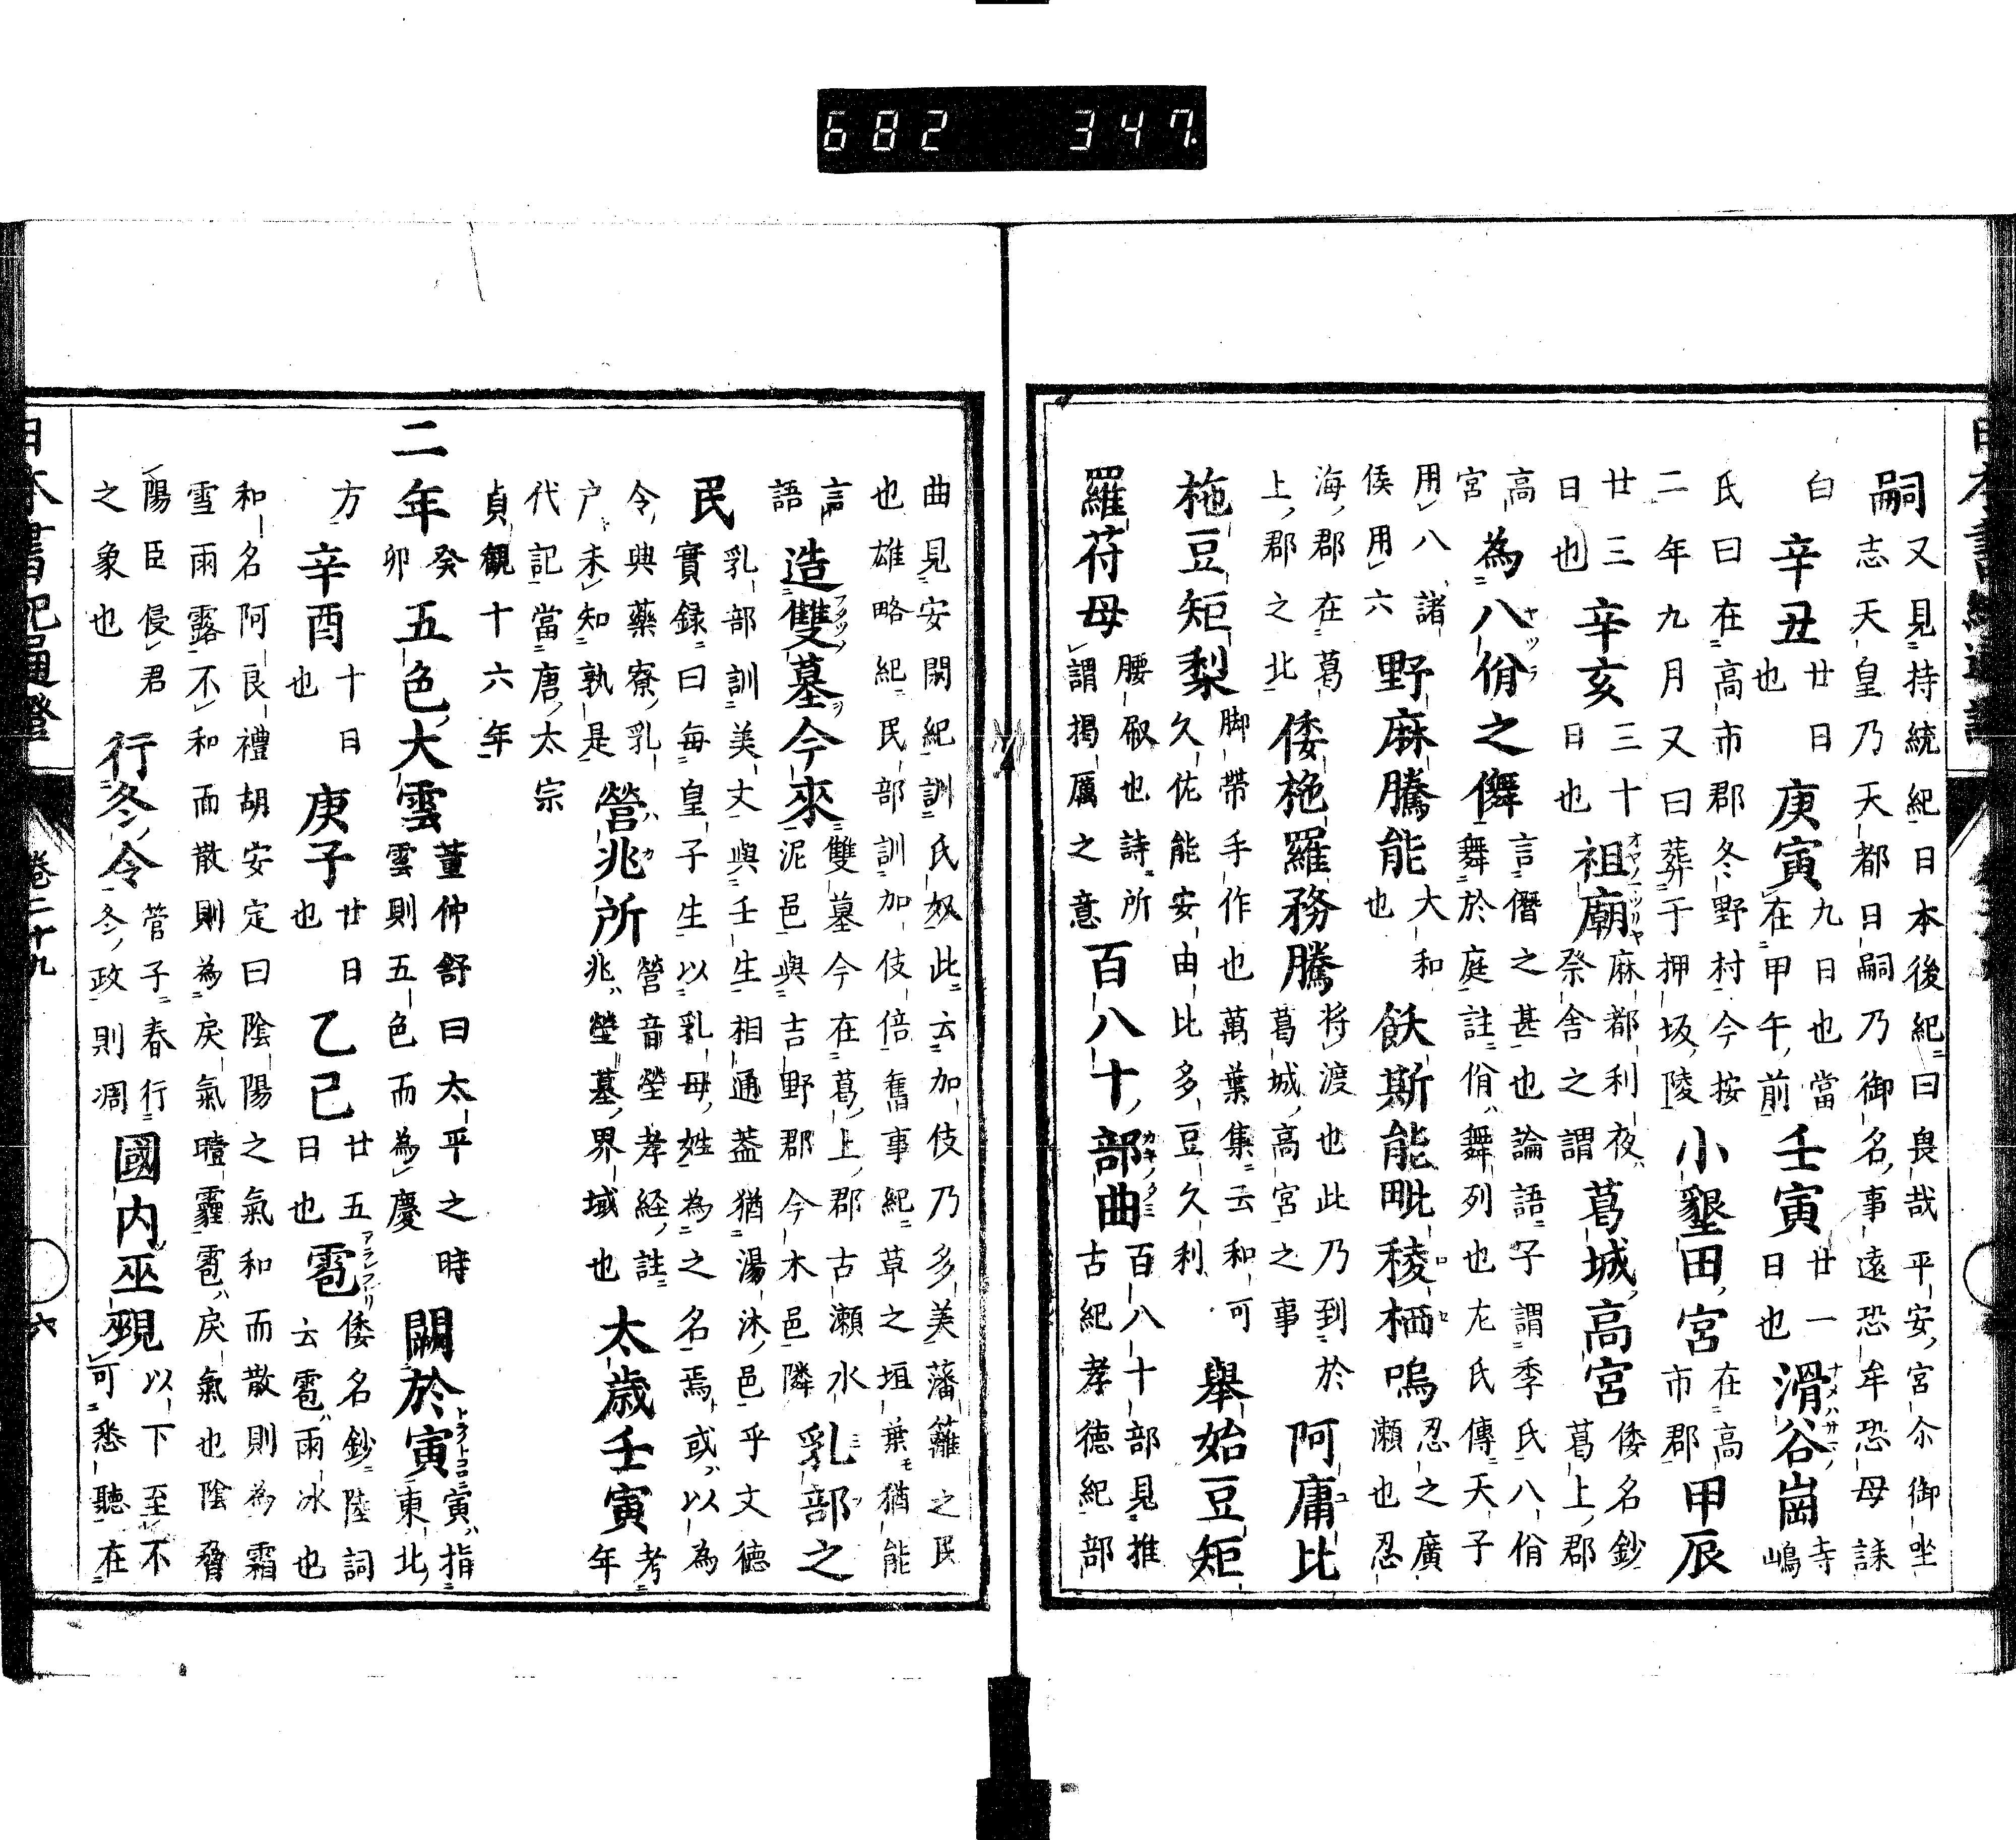 682 347
嗣又見持統紀日本後紀曰畏哉平安宮尓御坐
志天皇乃天都日嗣乃御名事遠恐牟恐母誄
白辛丑廿日也庚寅九日也當在甲午前壬寅廿一日也滑谷崗寺嶋
氏曰在高市郡冬野村今按
二年九月又曰葬于押坂陵小墾田宮在高市郡甲辰
廿三日也辛亥三十日也祖廟麻都利夜祭舎之謂葛城高宮倭名鈔葛上郡
高宮為八佾之儛言僭之甚也論語子謂季氏八佾舞於庭註佾舞列也左氏傳天子
用八諸侯用六野麻騰能大和也飫斯能毗稜栖鳴忍之廣瀬也忍
海郡在葛上郡之北倭柂羅務騰将渡也此乃到於葛城高宮之事阿庸比
柂豆矩梨脚帶手作也萬葉集云和可久佐能安由比多豆久利舉始豆矩
羅符母腰㕞也詩所謂揭厲之意百八十部曲百八十部見推古紀孝徳紀部
曲見安閑紀訓氏奴此云加伎乃多美藩籬之民
也雄略紀民部訓加伎倍舊事紀草之垣葉猶能
言語造雙墓今來雙墓今在葛上郡古瀬水泥邑與吉野郡今木邑隣乳部之
民乳部訓美文與壬生相通蓋猶湯沐邑乎文德實録曰毎皇子生以乳母姓為之名焉或以為
令興藥寮乳戸未知孰是營兆所營音塋孝経註兆塋墓界域也太歳壬寅考年
代記當唐太宗
貞觀十六年
二年癸卯五色大雲董仲舒曰太平之時雲則五色而為慶闕於寅寅指東北
方辛酉十日也庚子廿日也乙巳廿五日也雹倭名鈔陸詞云雹雨冰也
和名阿良禮胡安定曰陰陽之氣和而散則為霜
雪雨露不和而散則為戾氣曀霾雹戾氣也陰脅
陽臣侵君之象也行冬令管子春行冬政則凋國内巫覡以下至不可悉聽在
日本書紀通證 卷二十九 六